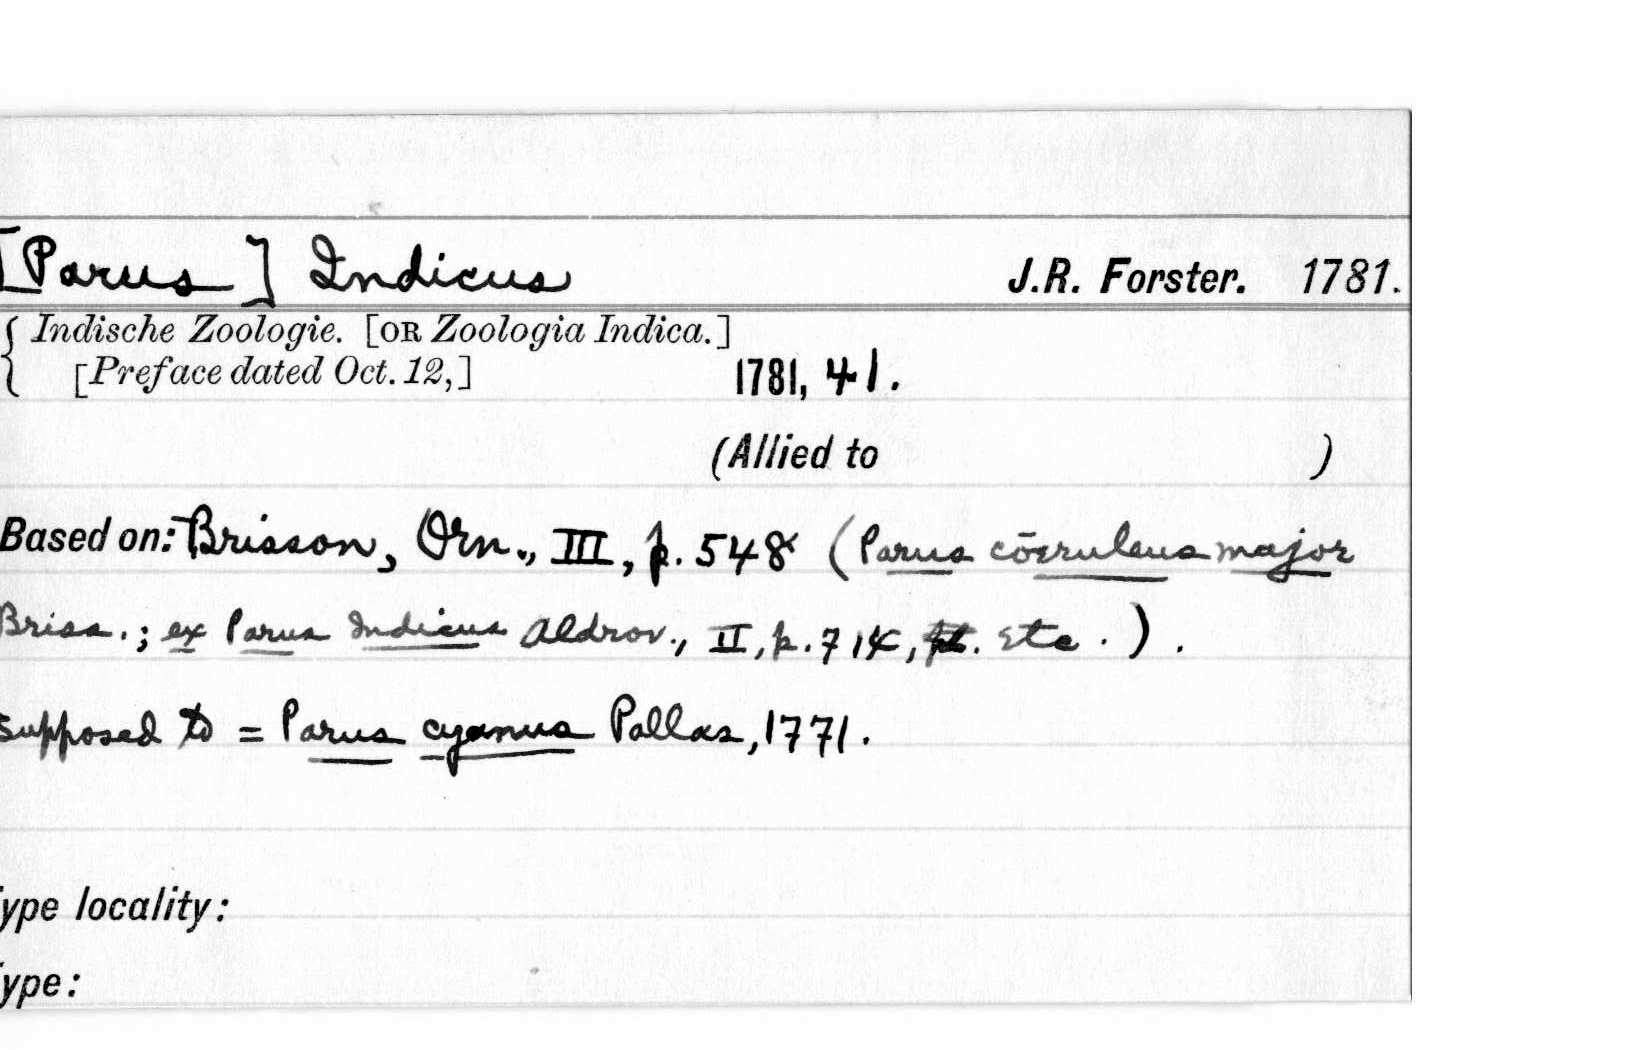 [Parus] Indicus J.R. Forster. 1781.
Indische Zoologie. [OR Zoologia Indica.]
[Preface dated Oct. 12,] 1781, 41.
(Allied to )
Based on: Brisson, Orn., III, p. 548 (Parus cœruleus major
Briss.; ex Parus Indicus Aldrov., II, p. 714, etc.).
supposed to = Parus cyanus Pallas, 1771.
ype locality:
ype: